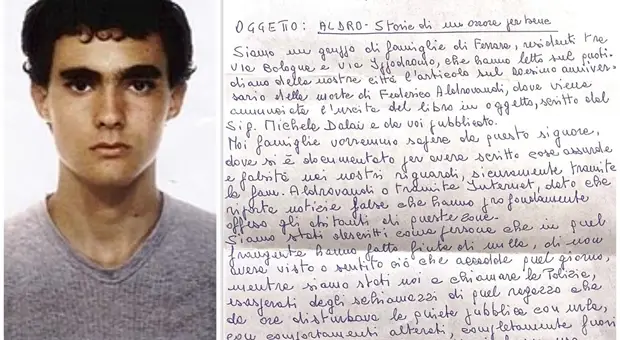 OGGETTO: ALDRO - Storie di un amore per bene
Siamo un gruppo di famiglie di Ferrara, residenti tra
via Bologna e via Ippodromo, che hanno letto sul quoti-
diano della nostra città l'articolo sul ventesimo anniver-
sario della morte di Federico Aldrovandi, dove viene
annunciata l'uscita del libro in oggetto, scritto dal
Sig. Michele Dalai e da voi pubblicato.
Noi famiglie vorremmo sapere da questo signore,
dove si è documentato per avere scritto cose assurde
e falsità nei nostri riguardi, sicuramente tramite
la fam. Aldrovandi o tramite Internet, dato che
riporta notizie false che hanno profondamente
offeso gli abitanti di queste zone.
Siamo stati descritti come persone che in quel
frangente hanno fatto finta di nulla, di non
avere visto o sentito ciò che accadde quel giorno,
mentre siamo stati noi a chiamare la Polizia,
esasperati dagli schiamazzi di quel ragazzo che
da ore disturbava la quiete pubblica con urla,
con comportamenti alterati, completamente fuori